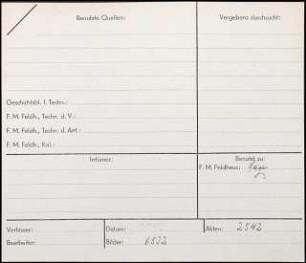 Benutzte Quellen:
Vergebens durchsucht:
Geschichtsbl. f. Techn.:
F. M. Feldh., Techn. d. V.:
F. M. Feldh., Techn. d. Ant.:
F. M. Feldh., Kal.:
Irrtümer:
Benutzt zu:
F. M. Feldhaus:
Verfasser:
Datum:
Akten: 2542
Bearbeiter:
Bilder: 6532